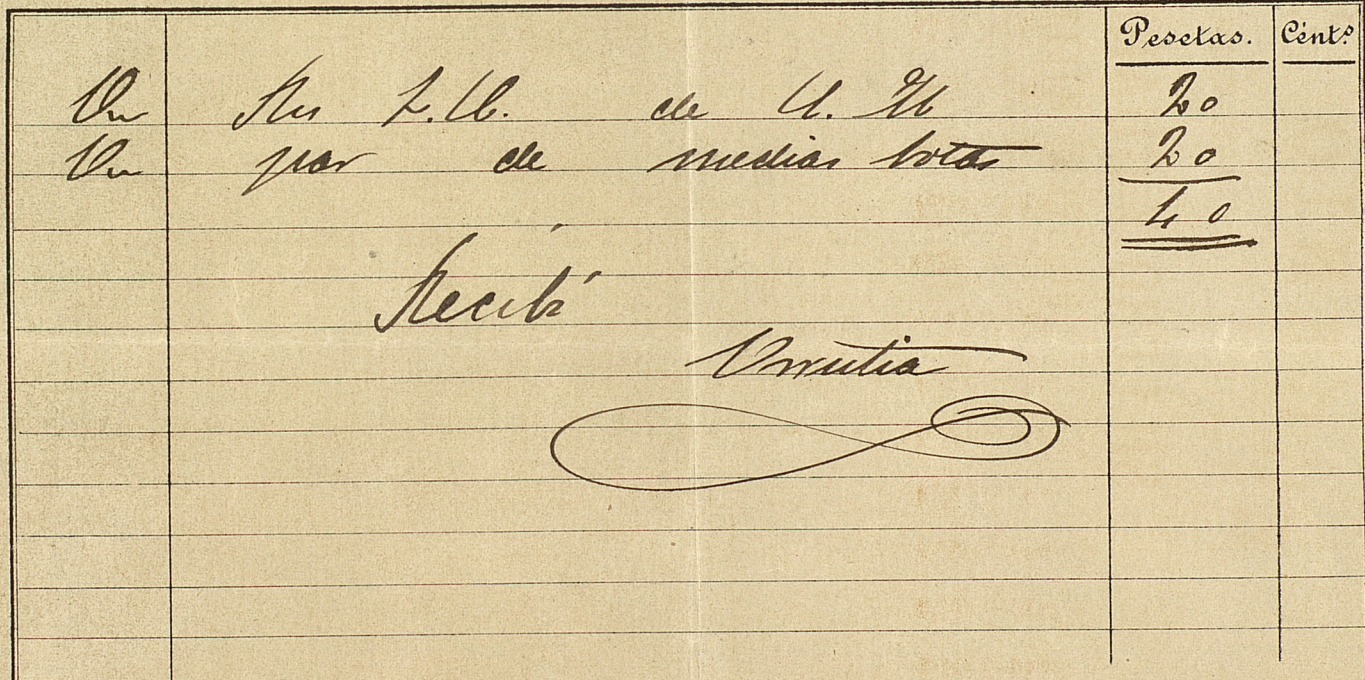 Pesetas. Cént.ˢ
Un de 20
Un par de medias botas 20
40
Recibí
Urrutia